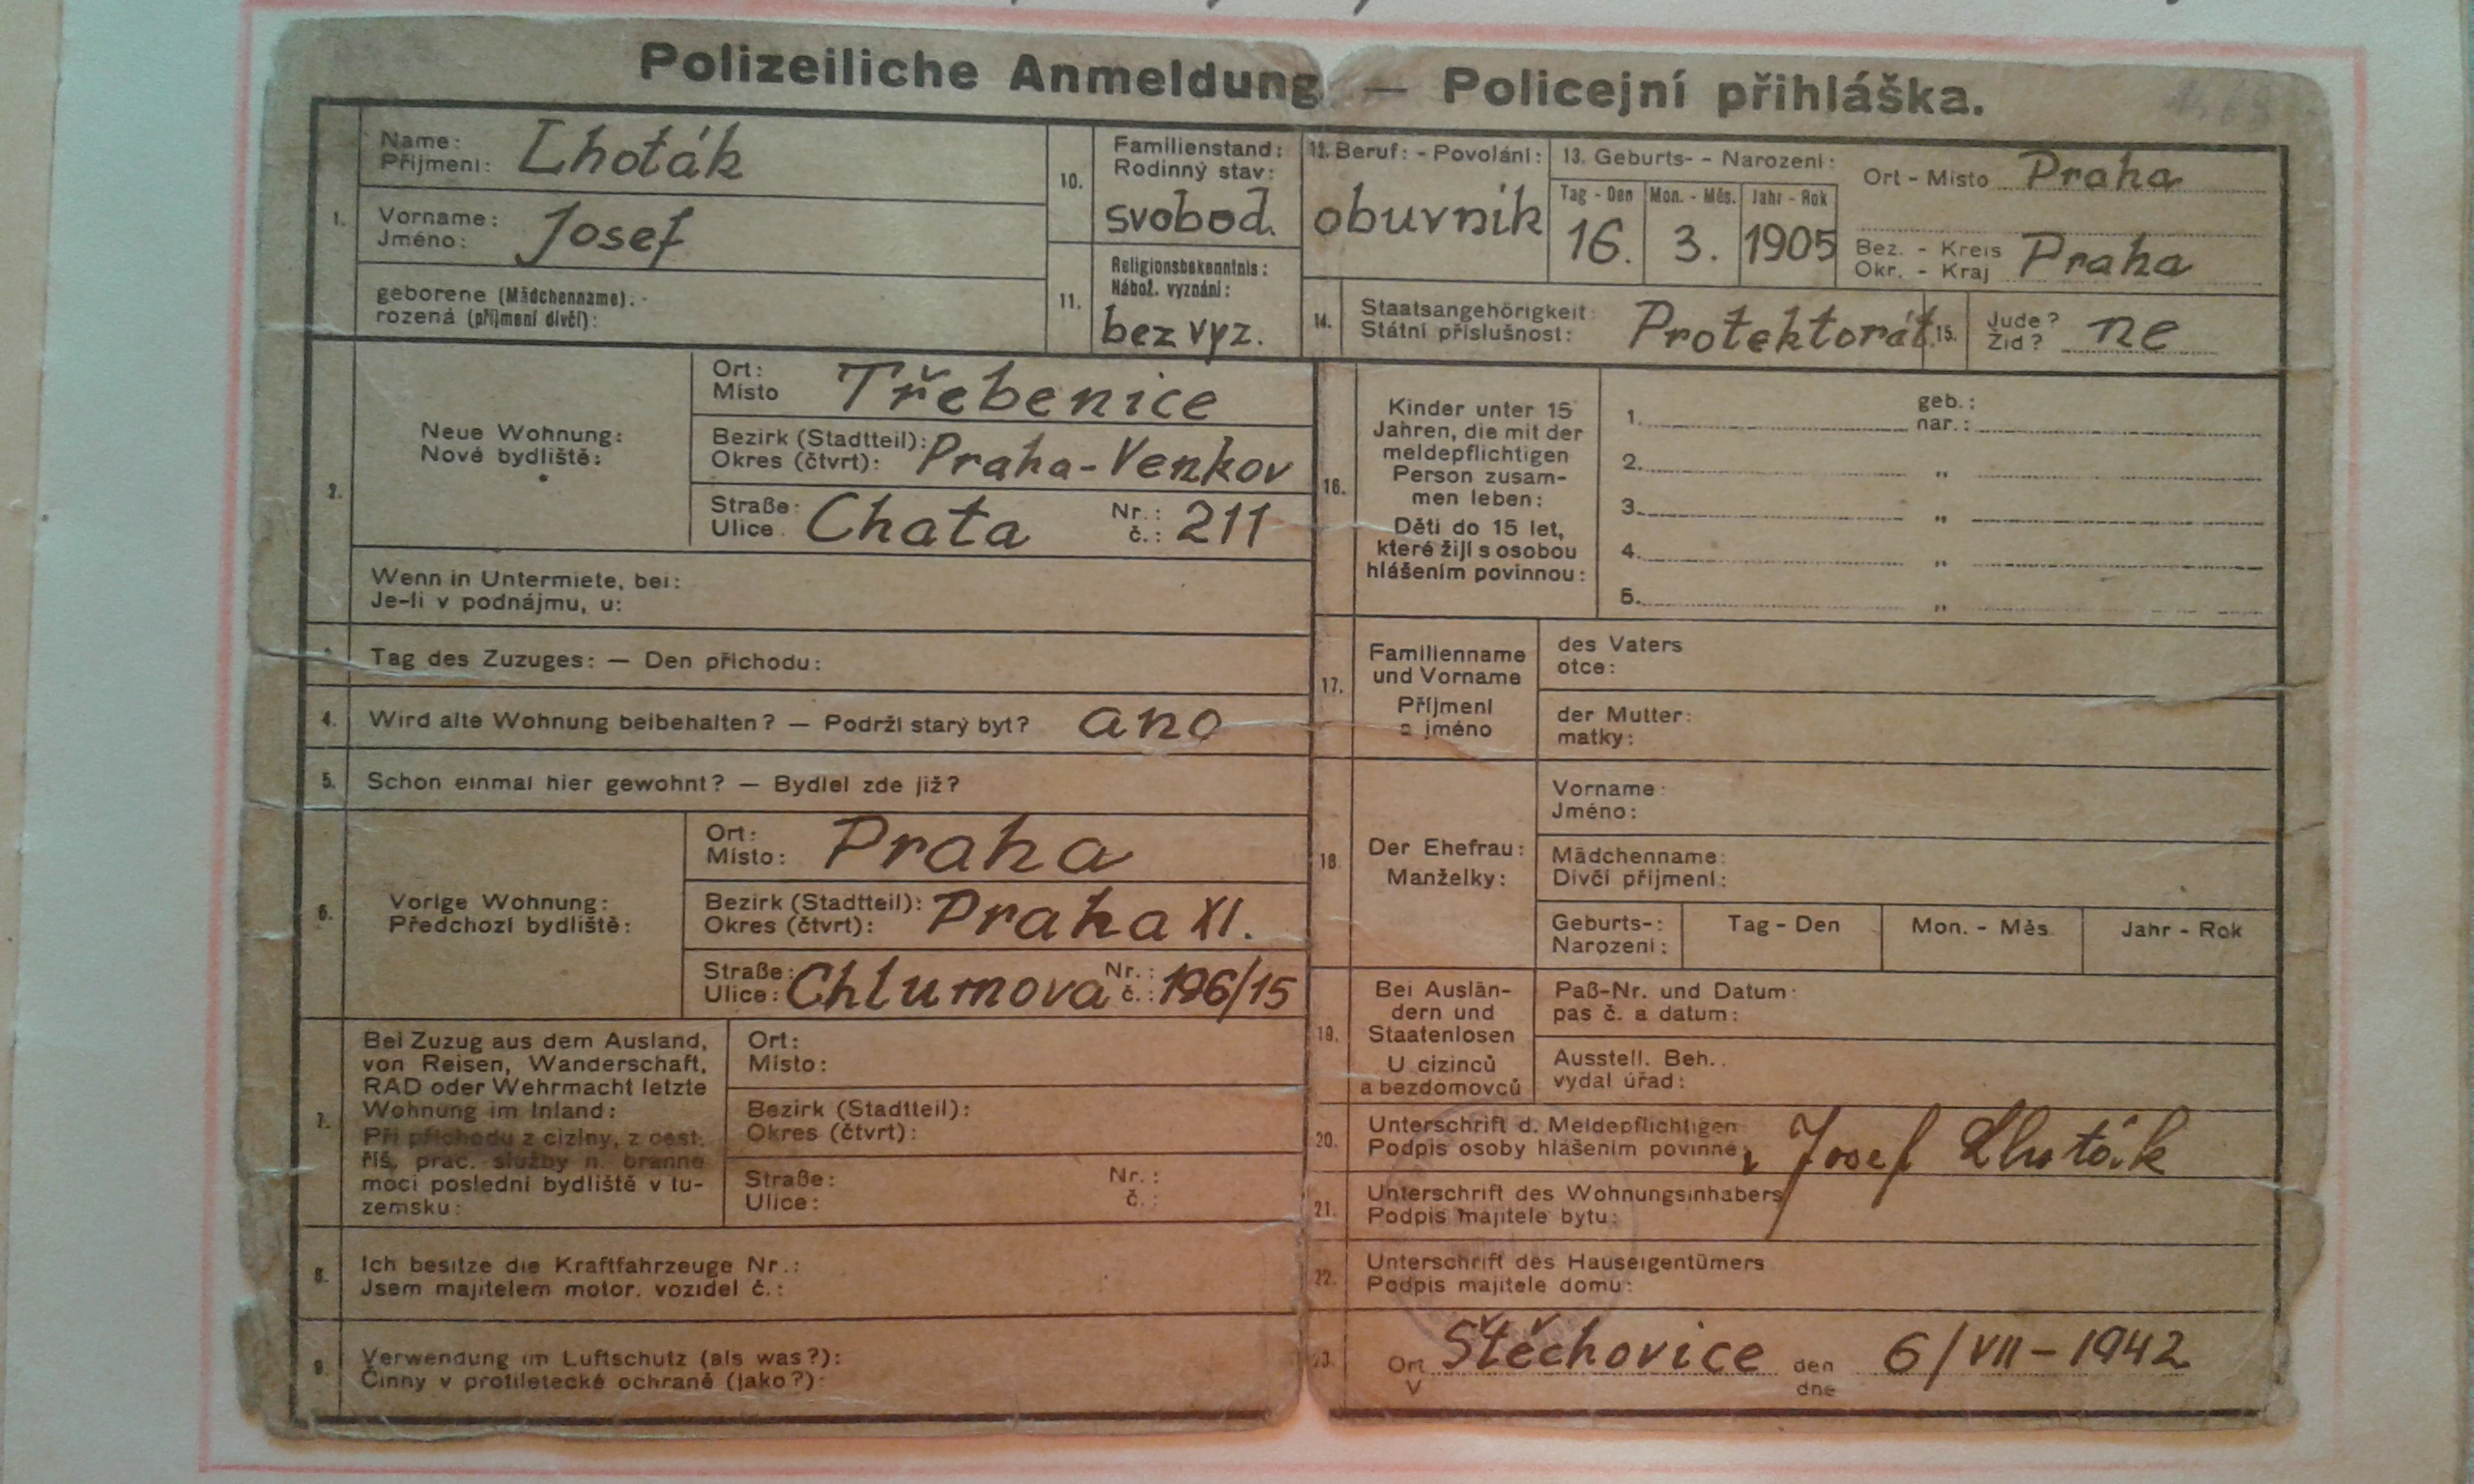 Polizeiliche Anmeldung — Policejní přihláška.
1.
Name:
Příjmení: Lhoták
Vorname:
Jméno: Josef
geborene (Mädchenname):
rozená (příjmení dívčí):
10.
Familienstand:
Rodinný stav:
svobod.
11.
Religionsbekenntnis:
Nábož. vyznání:
bez vyz.
12. Beruf: - Povolání:
obuvník
13. Geburts- - Narození:
Tag - Den Mon. - Měs. Jahr - Rok
16. 3. 1905
Ort - Místo Praha
Bez. - Kreis
Okr. - Kraj Praha
14.
Staatsangehörigkeit:
Státní příslušnost: Protektorát
15.
Jude?
Žid? ne
2.
Neue Wohnung:
Nové bydliště:
Ort:
Místo Třebenice
Bezirk (Stadtteil):
Okres (čtvrt): Praha-Venkov
Straße:
Ulice Chata
Nr.:
č.: 211
Wenn in Untermiete, bei:
Je-li v podnájmu, u:
Tag des Zuzuges: — Den příchodu:
4. Wird alte Wohnung beibehalten? — Podrží starý byt? ano
5. Schon einmal hier gewohnt? — Bydlel zde již?
6.
Vorige Wohnung:
Předchozí bydliště:
Ort:
Místo: Praha
Bezirk (Stadtteil):
Okres (čtvrt): Praha XI.
Straße:
Ulice: Chlumova
Nr.:
č.: 196/15
7.
Bei Zuzug aus dem Ausland,
von Reisen, Wanderschaft,
RAD oder Wehrmacht letzte
Wohnung im Inland:
Při příchodu z ciziny, z cest,
říš. prac. služby n. branné
moci poslední bydliště v tu-
zemsku:
Ort:
Místo:
Bezirk (Stadtteil):
Okres (čtvrt):
Straße:
Ulice:
Nr.:
č.:
8.
Ich besitze die Kraftfahrzeuge Nr.:
Jsem majitelem motor. vozidel č.:
9.
Verwendung im Luftschutz (als was?):
Činný v protiletecké ochraně (jako?):
16.
Kinder unter 15
Jahren, die mit der
meldepflichtigen
Person zusam-
men leben:
Děti do 15 let,
které žijí s osobou
hlášením povinnou:
1. geb.:
nar.:
2. „
3. „
4. „
5. „
17.
Familienname
und Vorname
Příjmení
a jméno
des Vaters
otce:
der Mutter:
matky:
18.
Der Ehefrau:
Manželky:
Vorname:
Jméno:
Mädchenname:
Dívčí příjmení:
Geburts-:
Narození:
Tag - Den Mon. - Měs. Jahr - Rok
19.
Bei Auslän-
dern und
Staatenlosen
U cizinců
a bezdomovců
Paß-Nr. und Datum:
pas č. a datum:
Ausstell. Beh.:
vydal úřad:
20.
Unterschrift d. Meldepflichtigen
Podpis osoby hlášením povinné: Josef Lhoták
21.
Unterschrift des Wohnungsinhabers
Podpis majitele bytu:
22.
Unterschrift des Hauseigentümers
Podpis majitele domu:
23.
Ort
V Štěchovice
den
dne 6/VII-1942